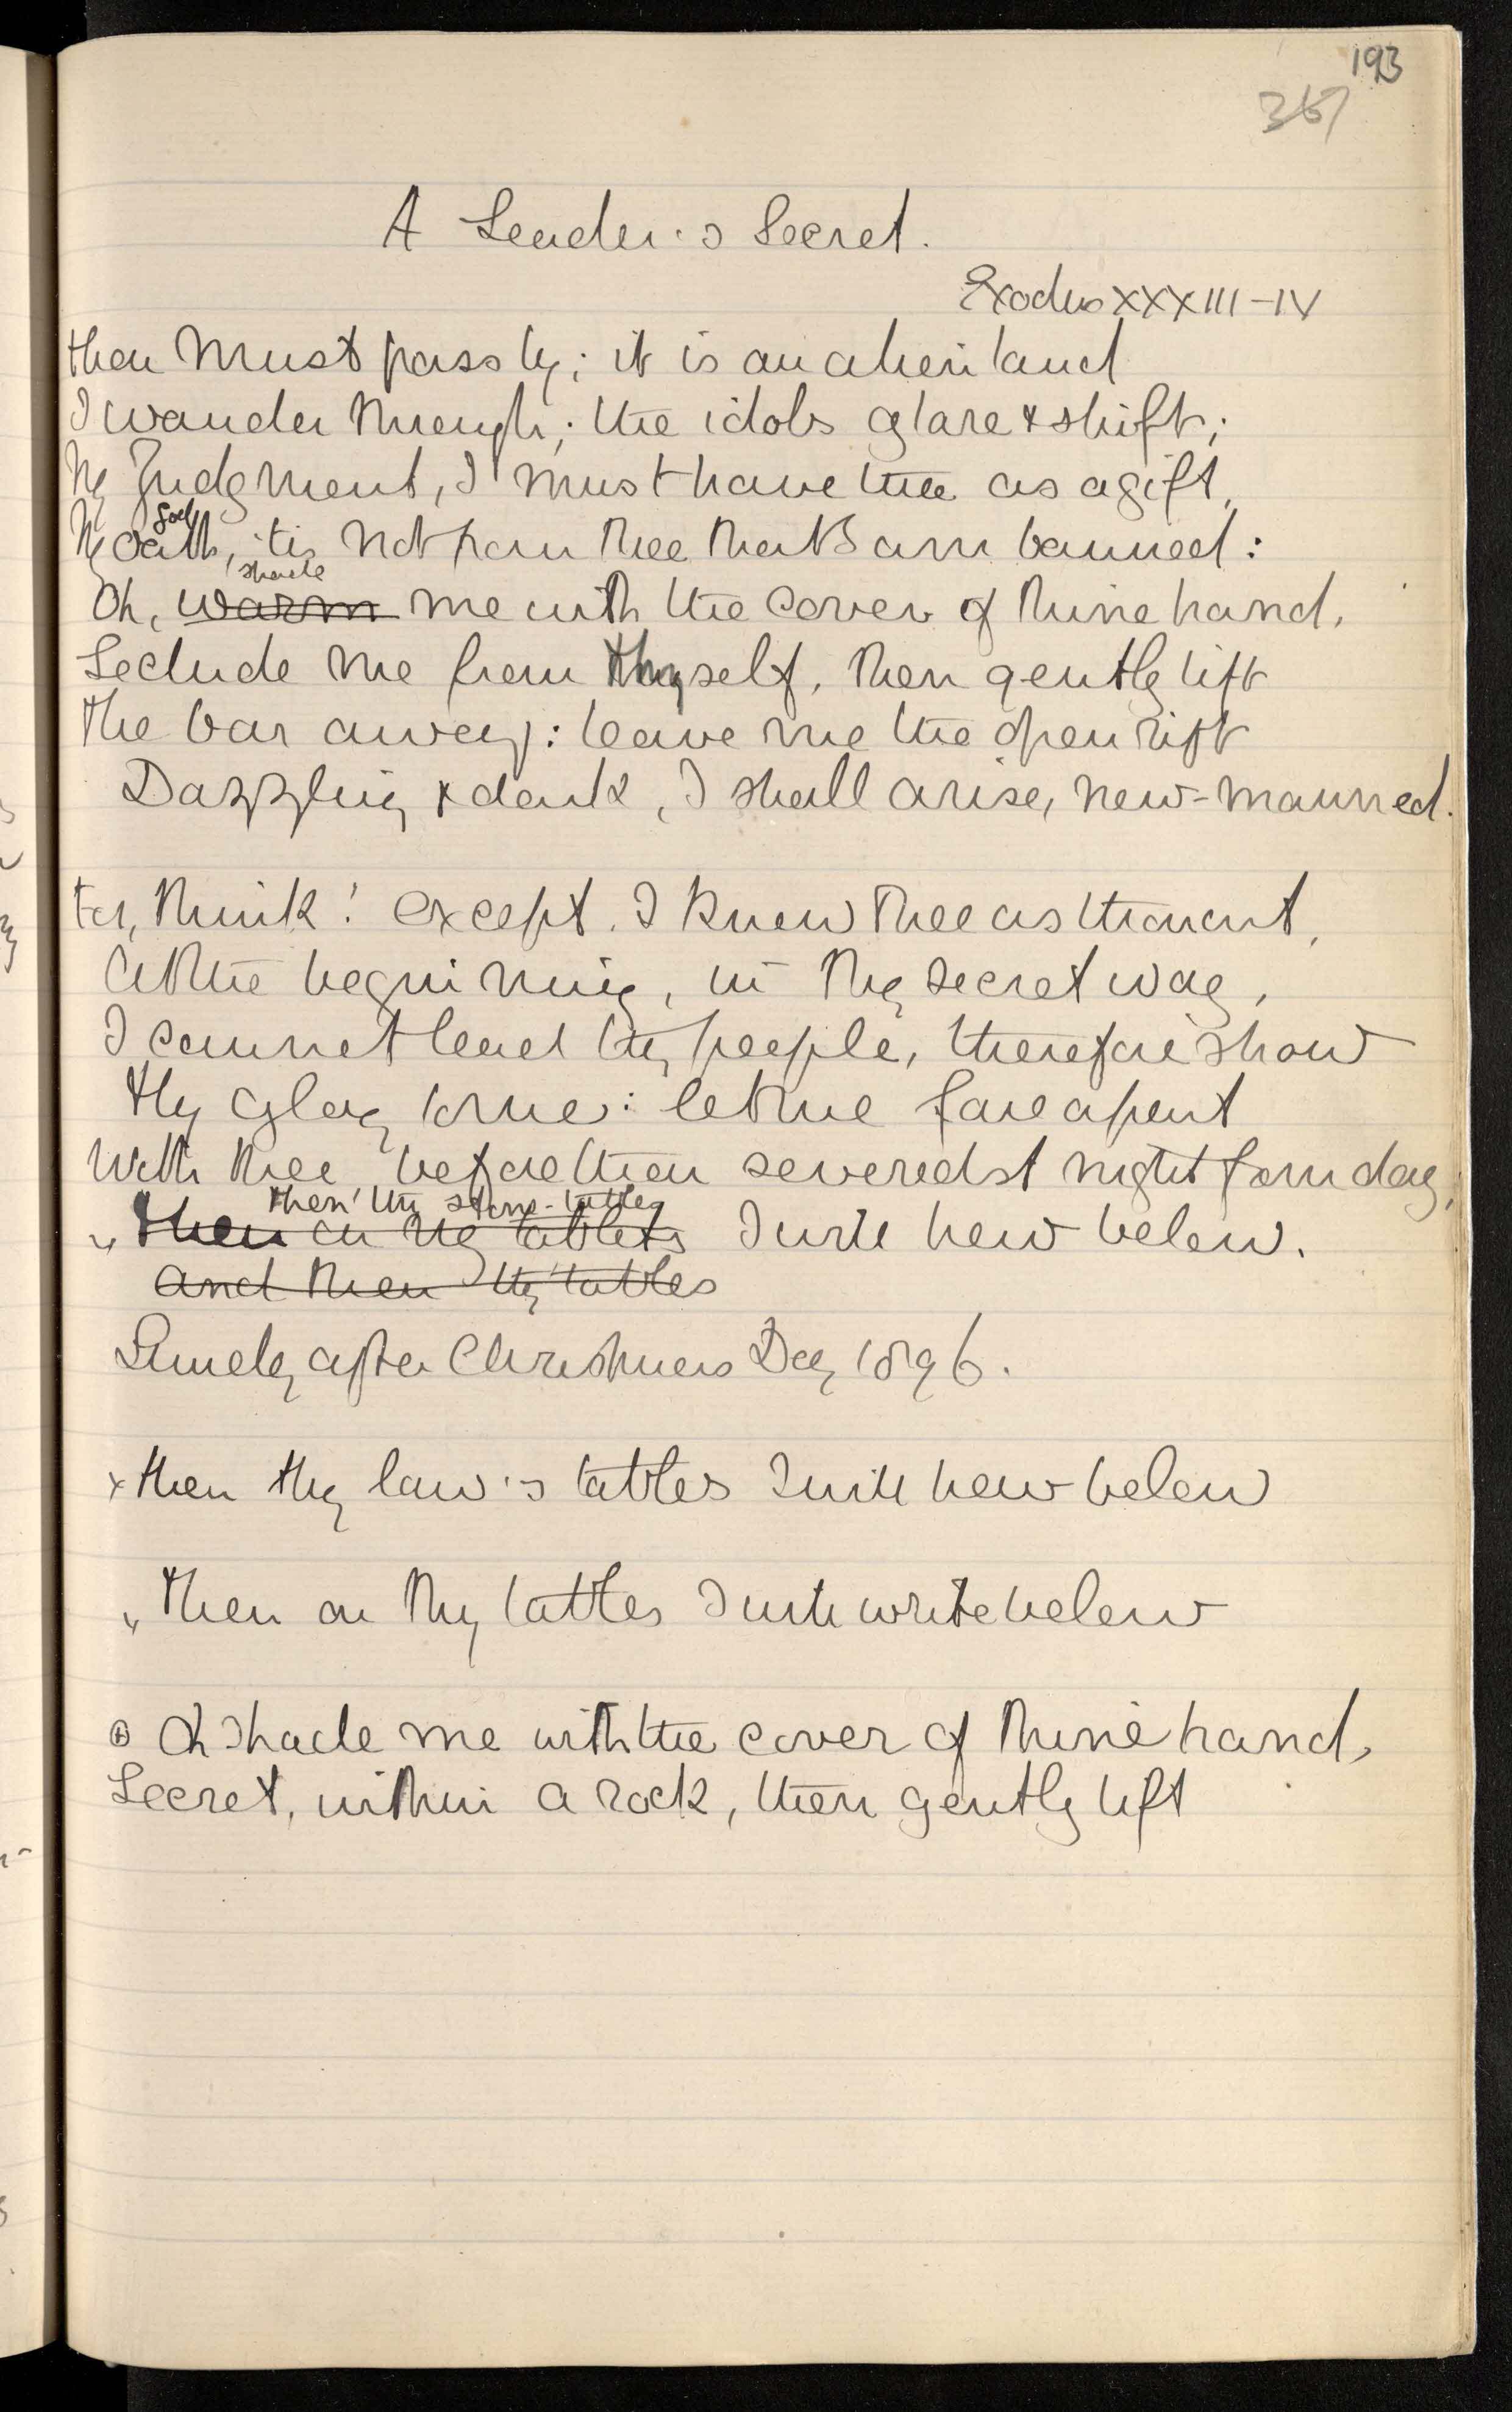 193
367
A Leader's Secret.
Exodus XXXIII-IV
Thou must pass by; it is an alien land
I wander through; the idols glare & shift;
My Judgment, I must have thee as a gift,
God
My oath, 'tis not from thee that I am banned:
shade
Oh, warm me with the cover of thine hand,
Seclude me from thyself, then gently lift
The bar away: leave me the open rift
Dazzling & dark, I shall arise, new-manned.
For, think! except I know thee as thou art,
At the beginning, in thy secret way,
I cannot lead thy people, therefore show
Thy glory to me: let me fare apart
With thee, before thou severedst night from day,
then thy stone-tables
then on thy tablets I will hew below.
and then thy tables
Sunday after Christmas Day 1896.
x then thy law's tables I will hew below
Then on thy tables I will write below
Oh shade me with the cover of thine hand,
Secret, within a rock, then gently lift